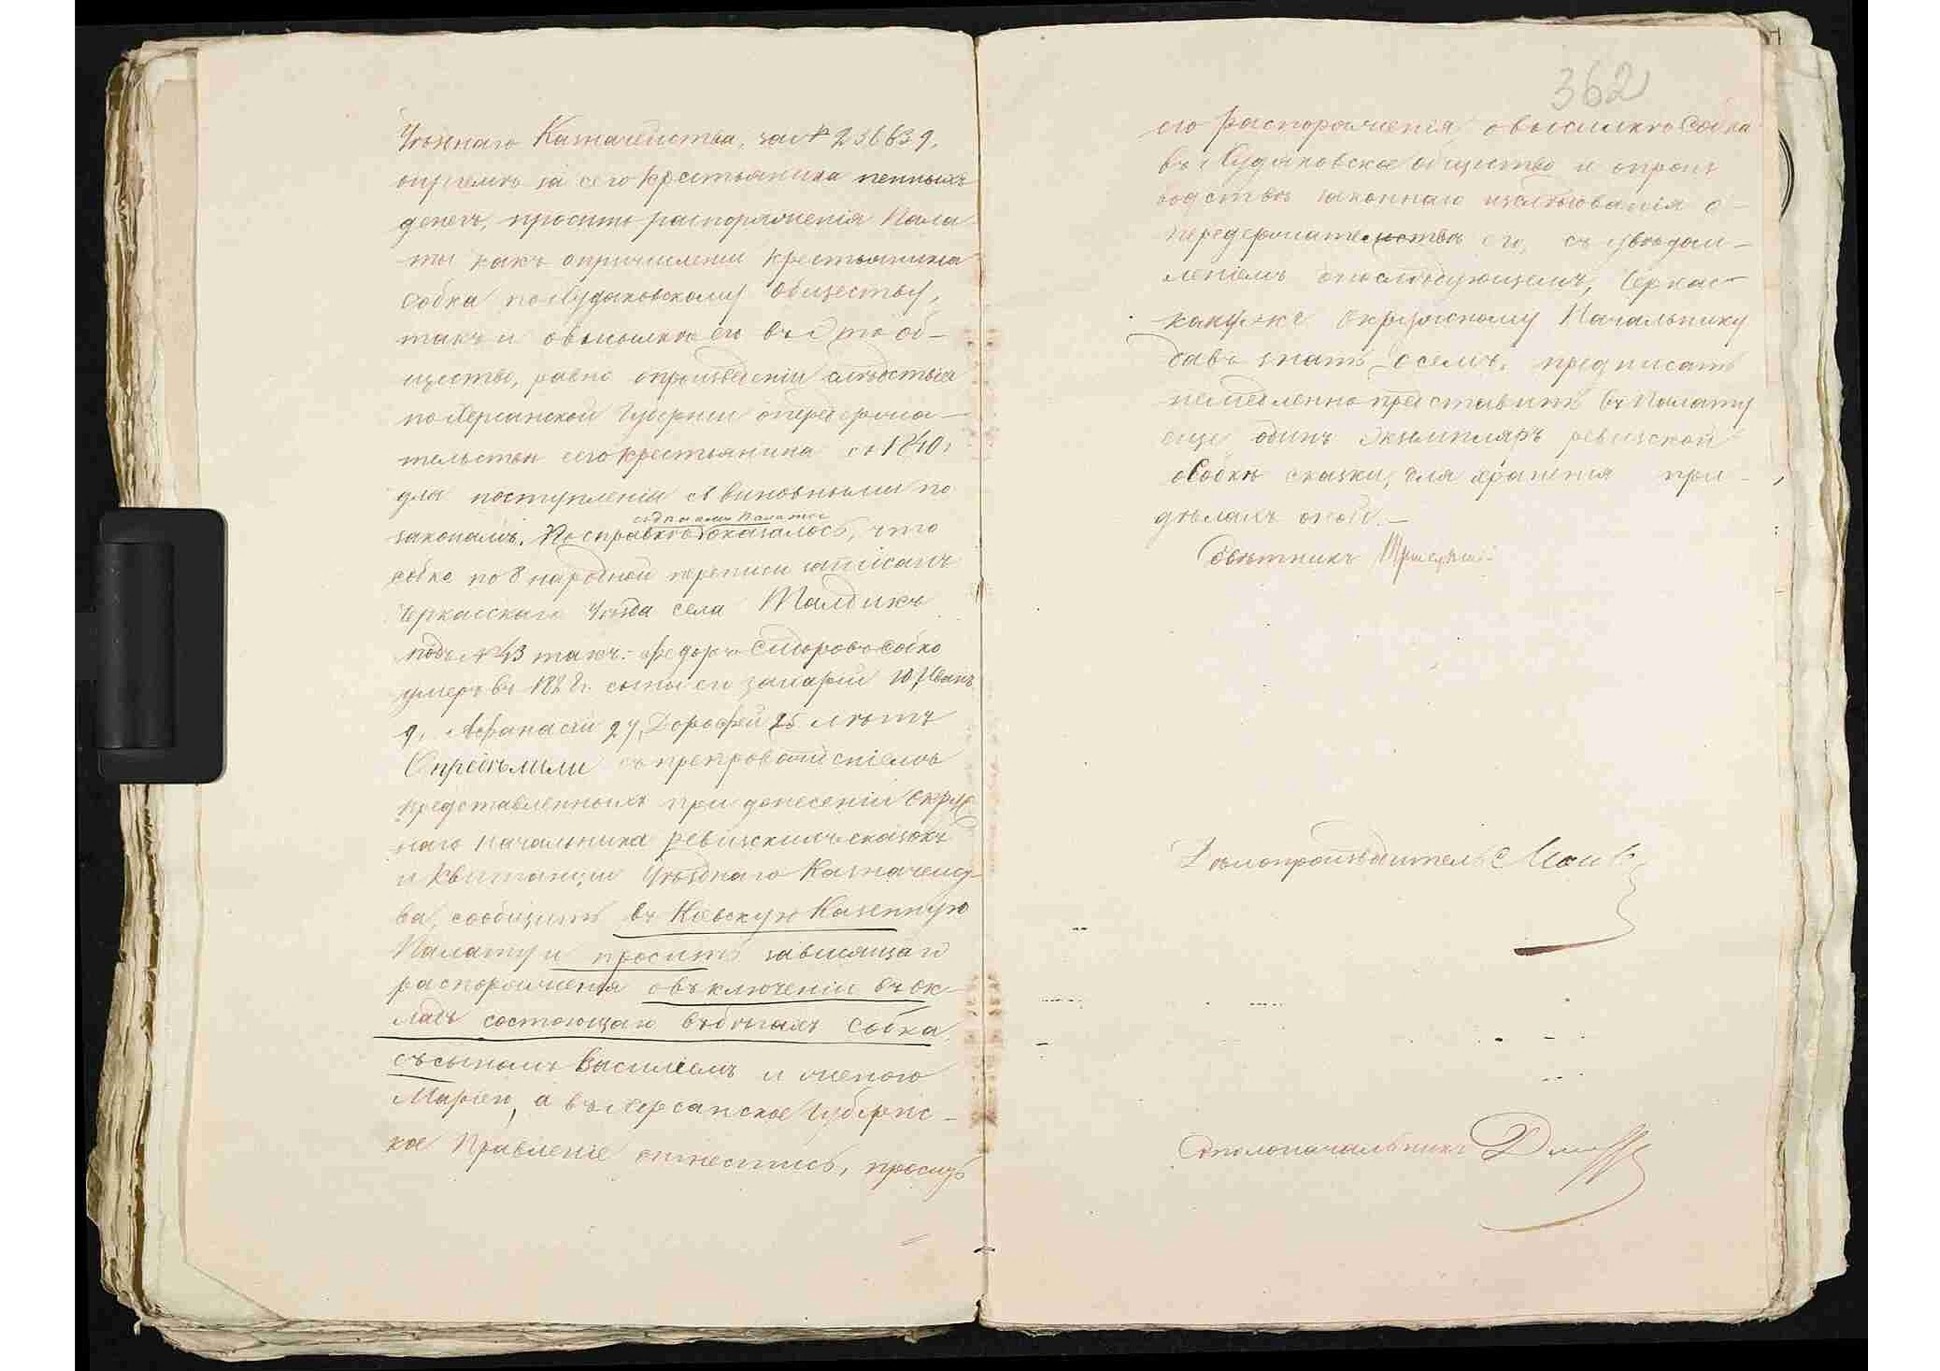 Уѣзнаго Казначейства, за № 236639,
опріемѣ за сего крестьянина пенныхъ
денегъ, проситъ распоряженія Пала
ты какъ опричисленіи крестьянина
Собка по Худяковскому обществу,
такъ и овысылкѣ его въ это об-
щество, равно опроизведеніи слѣдствія
по Херсанской Губерніи опередержа-
тельствѣ сего крестьянина съ 1840 г
для поступленіи съ виновными по
законамъ. По справкѣ оказалось, что
собко по 8 народной переписи записанъ
Черкасскаго Уѣзда села Талдикъ
подъ № 43 такъ: Федоръ Сидоровъ Собко
умеръ въ сыны его Захарій 10, Иванъ
9, Афанасій 27, Дорофей 25 лѣтъ
Опредѣлили: съ препровожденіемъ
представленныхъ при донесеніи Окруж
наго Начальника ревизскихъ сказокъ
и Квитанціи Уѣзднаго Казначейст
ва, сообщить въ Кіевскую Казенную
Палату и просить зависящаго
распоряженія овъключеніи въ ок-
ладъ состоящаго въ бѣгахъ Собка
съ сыномъ Василіемъ и женою
Маріею, а въ Херсанское Губернс-
кое Правленіе отнестись, прося
362
его распоряженія о высылкѣ Собка
въ Худяковское общество и опроиз
водствѣ законнаго изслѣдованія о
передержательствѣ его, съ увѣдом-
леніемъ опослѣдующемъ, Черкас-
кому же Окружному Начальнику
давъ знать осемъ, предписать
немедленно представить въ Палату
еще одинъ экземпляръ ревизской
о Собкѣ сказки, для храненія при
дѣлахъ оной.—
Совѣтникъ
Дѣлопроизводитель
Столоначальникъ